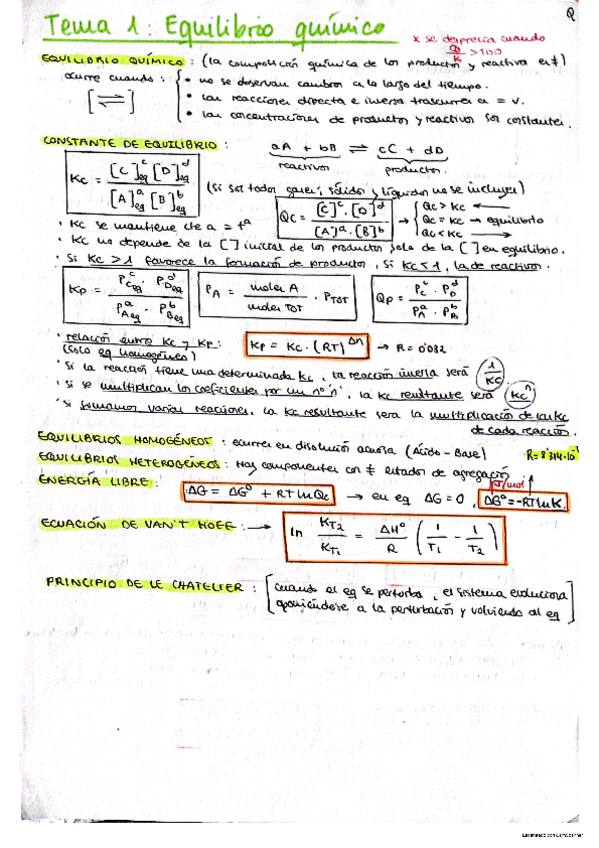 Tema 1: Equilibrio químico
Q
x se desprecia cuando
Co/K > 100
EQUILIBRIO QUÍMICO: (la composición química de los productos y reactivos es ≠)
ocurre cuando:
[⇌]
• no se observan cambios a lo largo del tiempo.
• las reacciones directa e inversa trascurren a = v.
• las concentraciones de productos y reactivos son constantes.
CONSTANTE DE EQUILIBRIO:
aA + bB ⇌ cC + dD
reactivos productos
Kc = [C]^c eq [D]^d eq / [A]^a eq [B]^b eq
(si son todos gases; sólidos y líquidos no se incluyen)
Qc = [C]^c · [D]^d / [A]^a · [B]^b
Qc > Kc ←
Qc = Kc → equilibrio
Qc < Kc →
· Kc se mantiene cte a = tª
· Kc no depende de la [ ] inicial de los productos solo de la [ ] en equilibrio.
· Si Kc > 1 favorece la formación de productos, si Kc < 1, la de reactivos.
Kp = P^c Ceq · P^d Deq / P^a Aeq · P^b Beq
PA = moles A / moles TOT · PTOT
Qp = P^c C · P^d D / P^a A · P^b B
· relación entre Kc y Kp:
(solo eq homogéneo)
Kp = Kc · (RT)^Δn → R = 0'082
· Si la reacción tiene una determinada Kc, la reacción inversa será 1/Kc
· si se multiplican los coeficientes por un nº "n", la Kc resultante será Kc^n
· Si sumamos varias reacciones, la Kc resultante será la multiplicación de las Kc
de cada reacción.
EQUILIBRIOS HOMOGÉNEOS: ocurren en disolución acuosa (Ácido-Base)
R = 8'314·10⁻³
EQUILIBRIOS HETEROGÉNEOS: Hay componentes con ≠ estados de agregación
ENERGÍA LIBRE:
ΔG = ΔG° + RT ln Qc → en eq ΔG = 0, ΔG° = -RT ln K.
ECUACIÓN DE VAN'T HOFF: →
ln KT2/KT1 = ΔH°/R (1/T1 - 1/T2)
PRINCIPIO DE LE CHATELIER: [cuando el eq se perturba, el sistema evoluciona
oponiéndose a la perturbación y volviendo al eq]